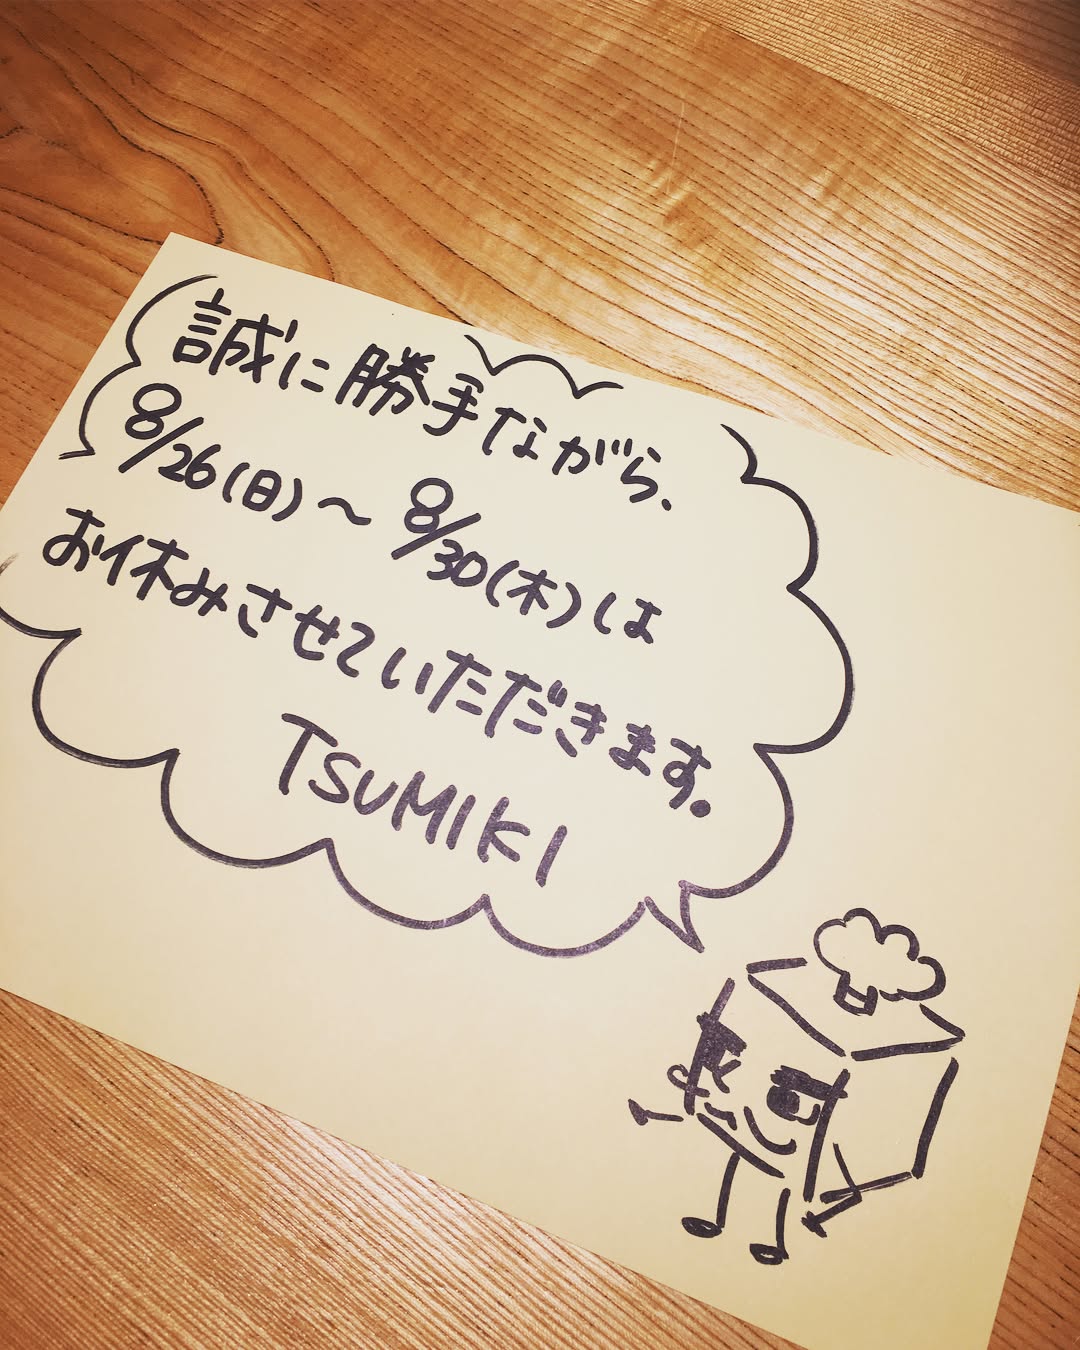 誠に勝手ながら、
8/26(日)〜8/30(木)は
お休みさせていただきます。
TSUMIKI